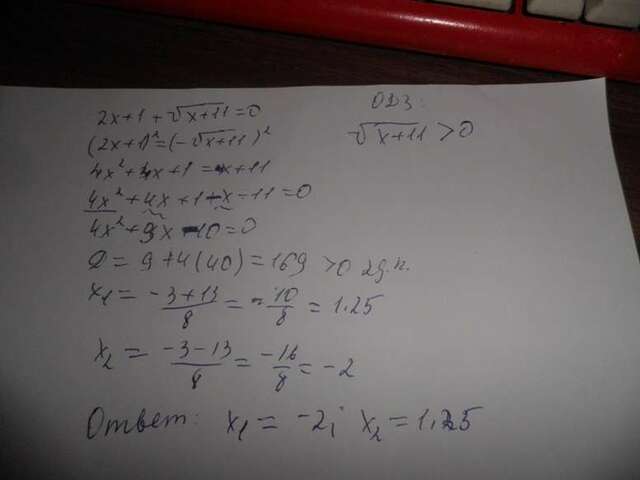 2x+1+√x+11=0
ОДЗ:
√x+11>0
(2x+1)²=(-√x+11)²
4x²+4x+1=x+11
4x²+4x+1-x-11=0
4x²+3x-10=0
D=9+4(40)=169>0 2д.к.
x₁=-3+13/8=10/8=1.25
x₂=-3-13/8=-16/8=-2
Ответ: x₁=-2; x₂=1.25